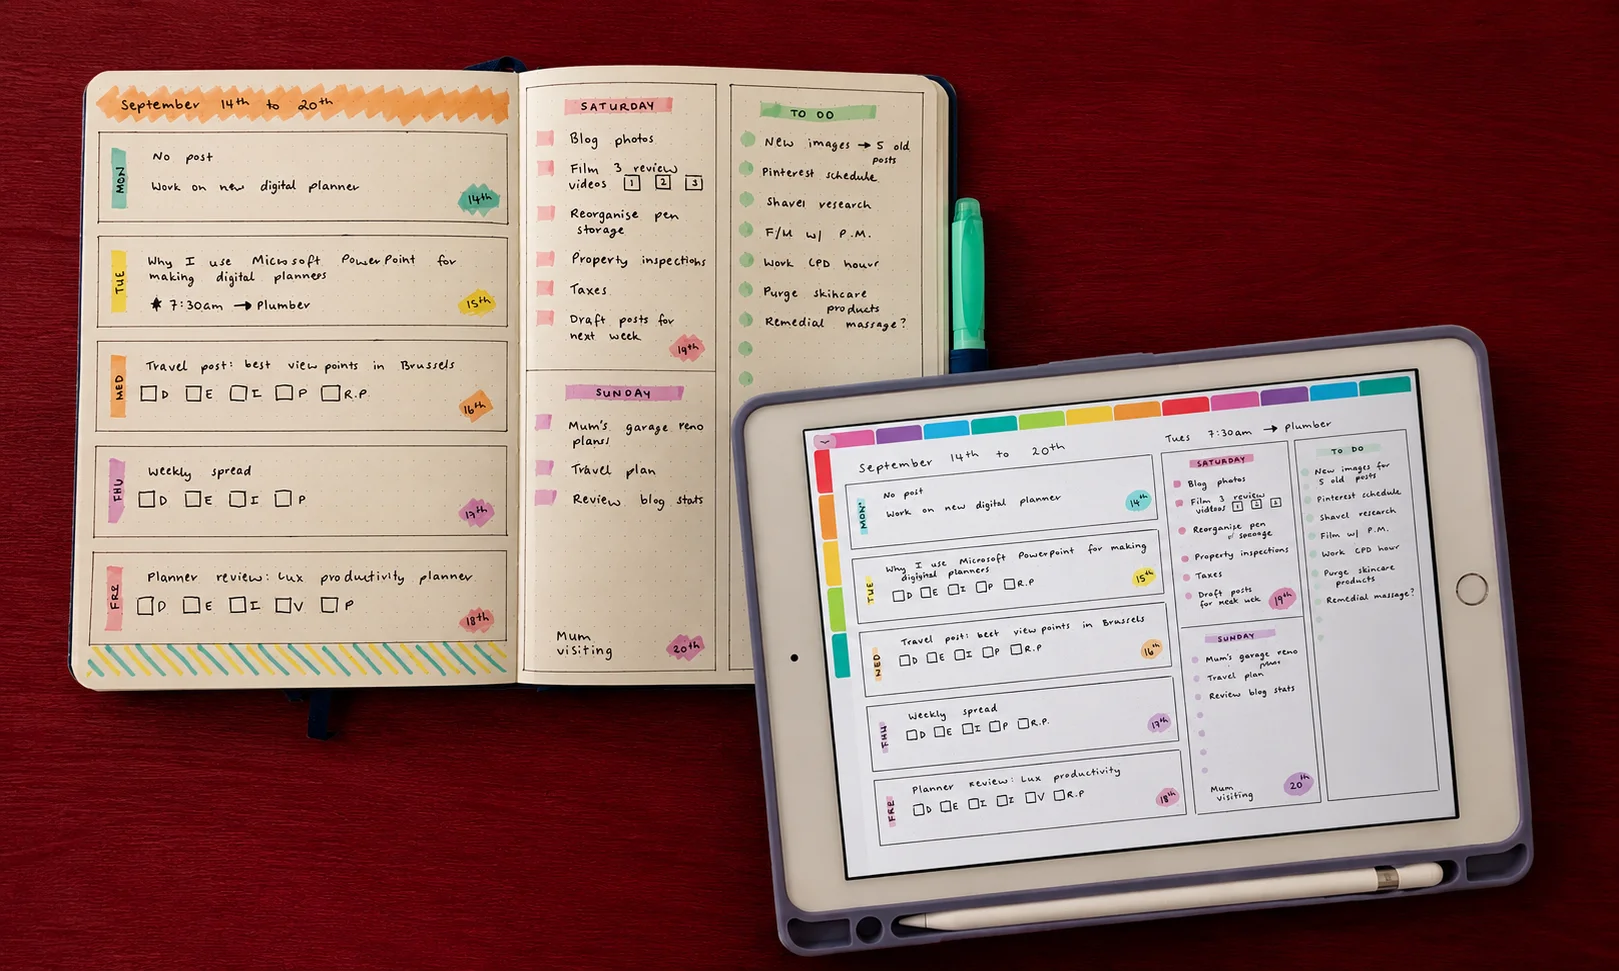 September 14th to 20th
MON
No post
Work on new digital planner
14th
TUE
Why I use Microsoft PowerPoint for
making digital planners
★ 7:30am → Plumber
15th
WED
Travel post: best view points in Brussels
D E I P R.P.
16th
THU
Weekly spread
D E I P
17th
FRI
Planner review: Lux productivity planner
D E I V P
18th
SATURDAY
Blog photos
Film 3 review
videos 1 2 3
Reorganise pen
storage
Property inspections
Taxes
Draft posts for
next week
19th
SUNDAY
Mum's garage reno
plans!
Travel plan
Review blog stats
Mum
visiting
20th
TO DO
New images → 5 old
posts
Pinterest schedule
Shavel research
F/M w/ P.M.
Work CPD hour
Purge skincare
products
Remedial massage?
September 14th to 20th
MON
No post
Work on new digital planner
14th
TUE
Why I use Microsoft Powerpoint for making
digital planners
D E I P R.P
15th
WED
Travel post: best view points in Brussels
D E I P R.P
16th
THU
Weekly spread
D E I P R.P.
17th
FRI
Planner review: Lux productivity
D E I I V R.P
18th
Tues 7:30am → plumber
SATURDAY
Blog photos
Film 3 review
videos 1 2 3
Reorganise pen
Property inspections
Taxes
Draft posts
for
19th
SUNDAY
Mum's garage reno
Travel plan
Review blog stats
Mum
visiting
20th
TO DO
New images for
5 old posts
Pinterest schedule
Shavel research
Film w/ P.M.
Work CPD hour
Purge skincare
products
Remedial massage?